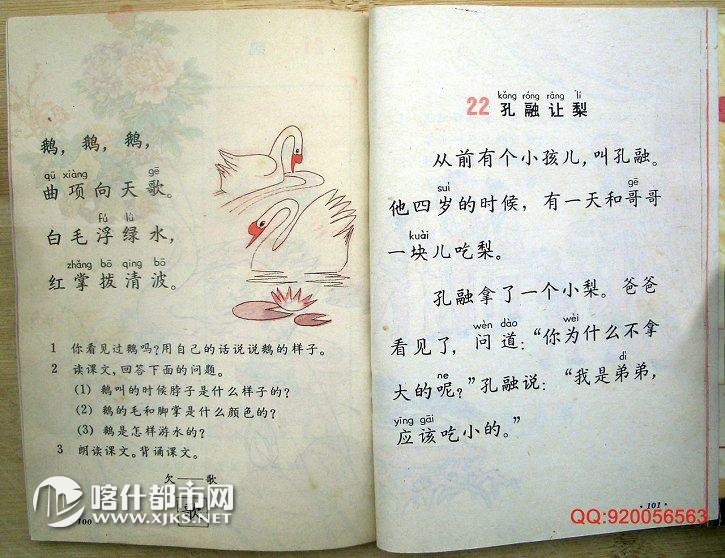 鹅，鹅，鹅，
qū xiàng gē
曲项向天歌。
fú lǜ
白毛浮绿水，
zhǎng bō qīng bō
红掌拨清波。
1 你看见过鹅吗？用自己的话说说鹅的样子。
2 读课文，回答下面的问题。
(1) 鹅叫的时候脖子是什么样子的？
(2) 鹅的毛和脚掌是什么颜色的？
(3) 鹅是怎样游水的？
3 朗读课文。背诵课文。
欠——歌
歌
100
喀什都市网
WWW.XJKS.NET
kǒng róng ràng lí
22 孔融让梨
从前有个小孩儿，叫孔融。
suì gē
他四岁的时候，有一天和哥哥
kuài
一块儿吃梨。
孔融拿了一个小梨。爸爸
wèn dào wèi
看见了，问道：“你为什么不拿
ne dì
大的呢？”孔融说：“我是弟弟，
yīng gāi
应该吃小的。”
·101·
QQ:920056563